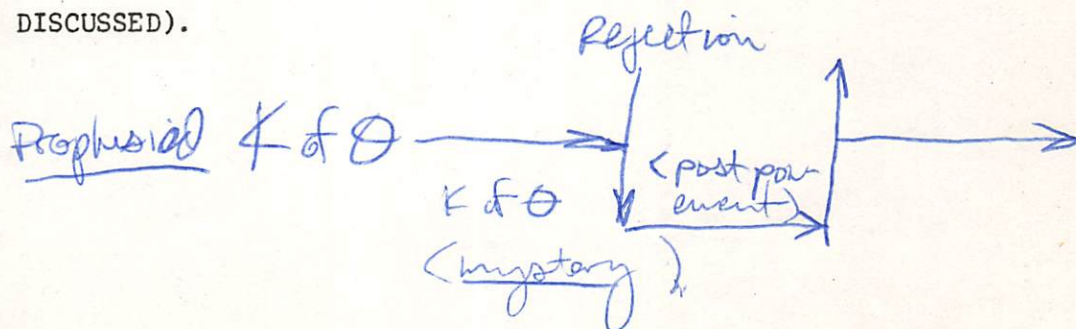 DISCUSSED).
Rejection
Prophesied K of Θ
<postpon-
ement>
K of Θ
(mystery)